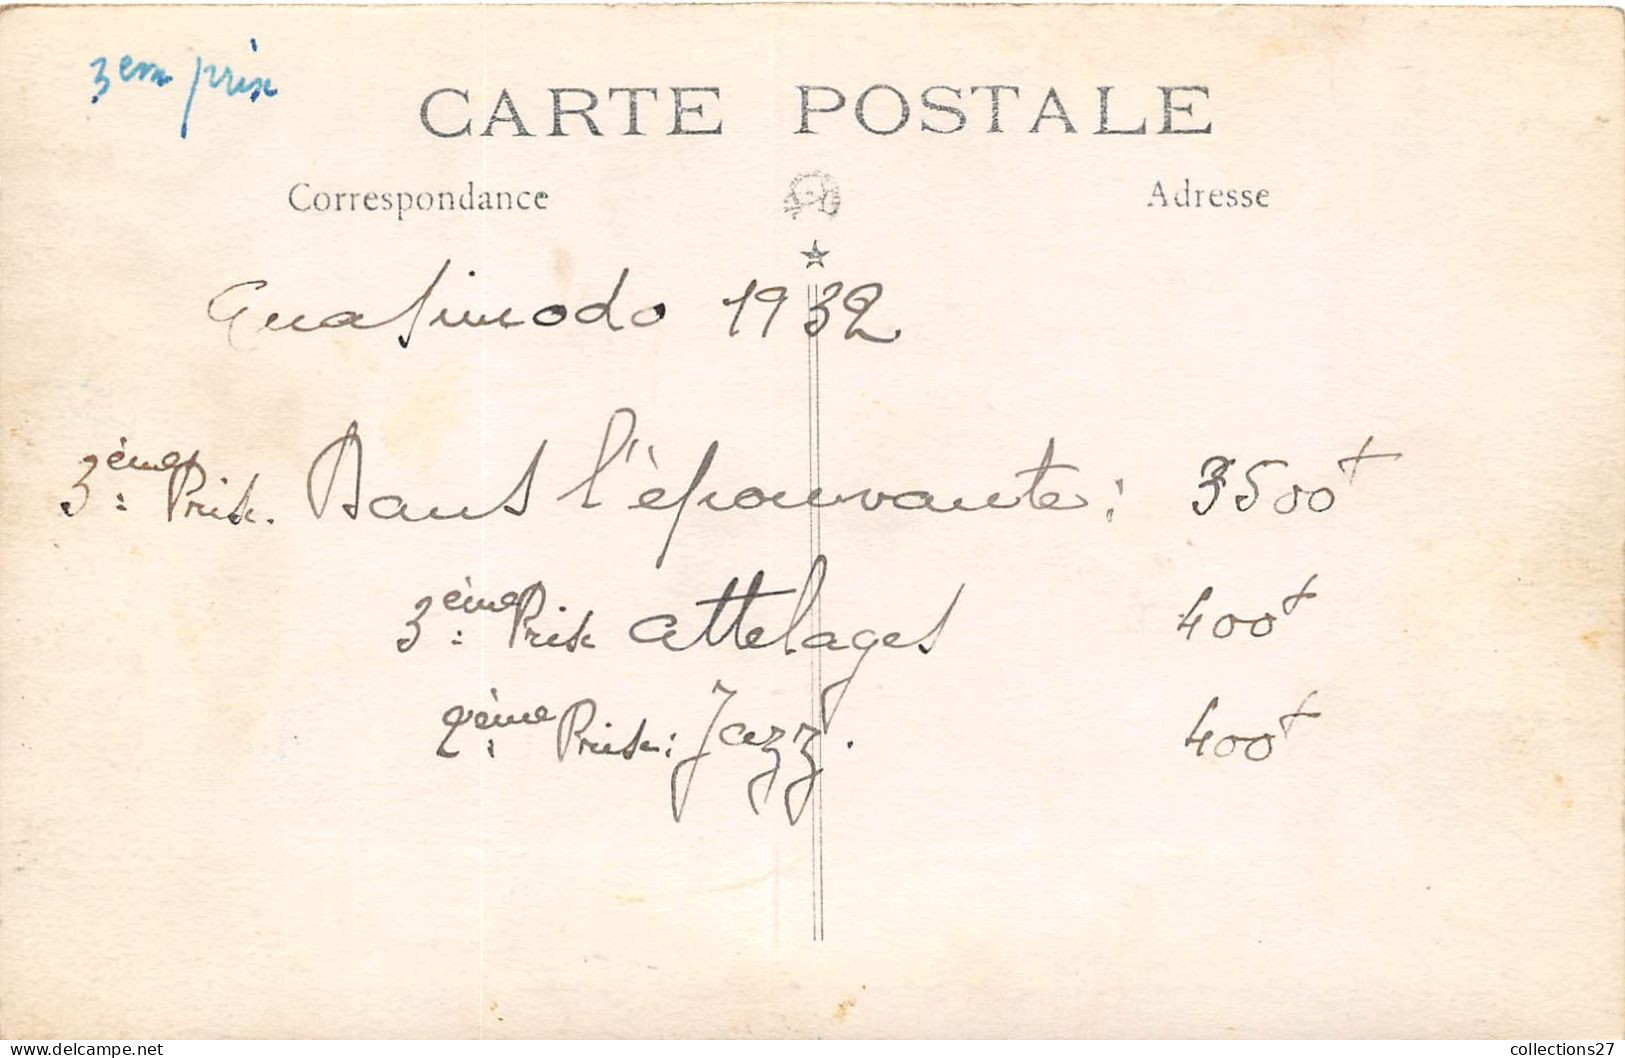 3em prix
CARTE POSTALE
Correspondance
Adresse
Quasimodo 1932
3ème Prix. Dans l'épouvante: 3500f
3ème Prix attelages 400f
2ème Prix: Jazz. 400f
collections27